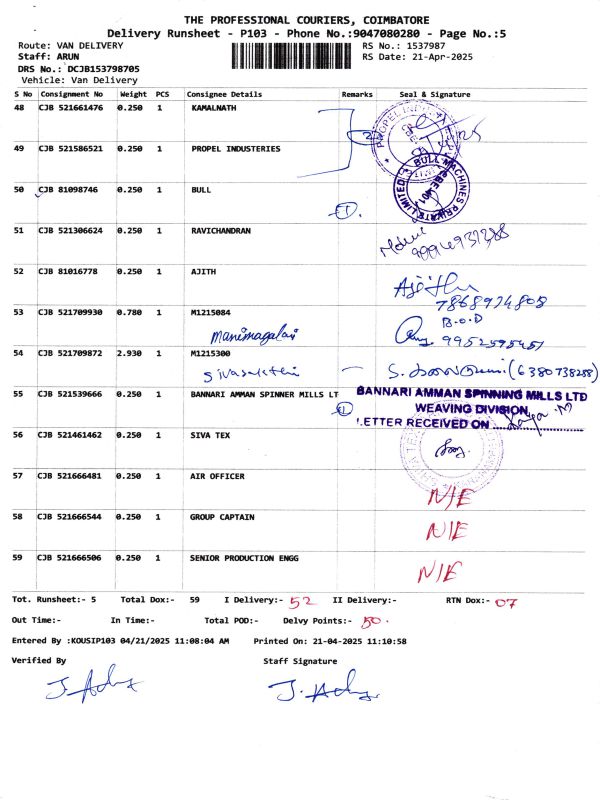 THE PROFESSIONAL COURIERS, COIMBATORE
Delivery Runsheet - P103 - Phone No.:9047080280 - Page No.:5
Route: VAN DELIVERY RS No.: 1537987
Staff: ARUN RS Date: 21-Apr-2025
DRS No.: DCJB153798705
Vehicle: Van Delivery
S No Consignment No Weight PCS Consignee Details Remarks Seal & Signature
48 CJB 521661476 0.250 1 KAMALNATH
2
49 CJB 521586521 0.250 1 PROPEL INDUSTERIES
50 CJB 81098746 0.250 1 BULL
BULL MACHINES PRIVATE LIMITED
1
51 CJB 521306624 0.250 1 RAVICHANDRAN
52 CJB 81016778 0.250 1 AJITH
Ajith
7868924808
53 CJB 521709930 0.780 1 M1215084
B.O.D
Manimagalai 9952595451
54 CJB 521709872 2.930 1 M1215300
Sivasakthi (6380738258)
55 CJB 521539666 0.250 1 BANNARI AMMAN SPINNER MILLS LT
BANNARI AMMAN SPINNING MILLS LTD
1 WEAVING DIVISION,
LETTER RECEIVED ON
56 CJB 521461462 0.250 1 SIVA TEX
57 CJB 521666481 0.250 1 AIR OFFICER
N/E
58 CJB 521666544 0.250 1 GROUP CAPTAIN
N/E
59 CJB 521666506 0.250 1 SENIOR PRODUCTION ENGG
N/E
Tot. Runsheet:- 5 Total Dox:- 59 I Delivery:- 52 II Delivery:- RTN Dox:- 07
Out Time:- In Time:- Total POD:- Delvy Points:- 50.
Entered By :KOUSIP103 04/21/2025 11:08:04 AM Printed On: 21-04-2025 11:10:58
Verified By Staff Signature